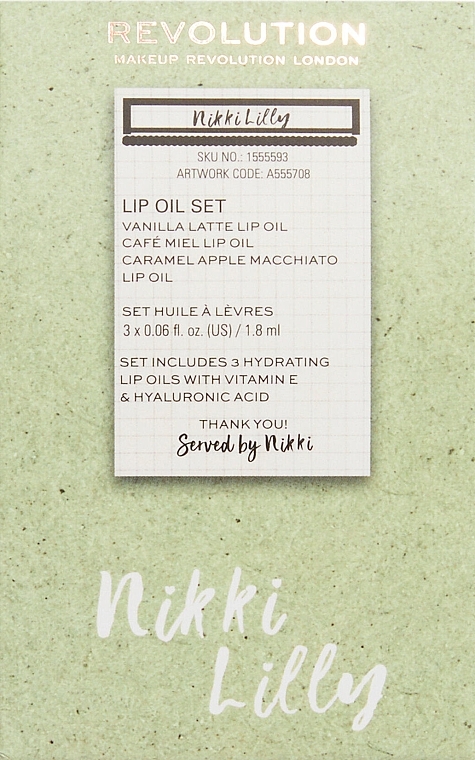 REVOLUTION
MAKEUP REVOLUTION LONDON
Nikki Lilly
SKU NO.: 1555593
ARTWORK CODE: A555708
LIP OIL SET
VANILLA LATTE LIP OIL
CAFÉ MIEL LIP OIL
CARAMEL APPLE MACCHIATO
LIP OIL
SET HUILE À LÈVRES
3 x 0.06 fl. oz. (US) / 1.8 ml
SET INCLUDES 3 HYDRATING
LIP OILS WITH VITAMIN E
& HYALURONIC ACID
THANK YOU!
Served by Nikki
Nikki
Lilly